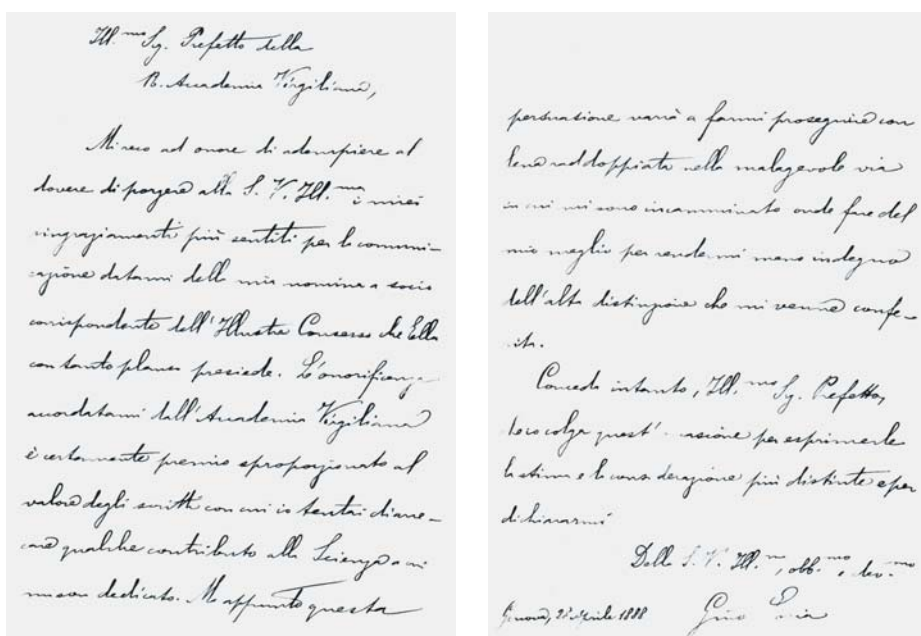 Ill.mo Sg. Prefetto della
R. Accademia Virgiliana,
Mi reco ad onore di adempiere al
dovere di porgere alla S. V. Ill.ma i miei
ringraziamenti più sentiti per la comuni-
cazione datami della mia nomina a socio
corrispondente dell'Illustre Consesso che Ella
con tanto plauso presiede. L'onorificenza
accordatami dall'Accademia Virgiliana
è certamente premio sproporzionato al
valore degli scritti con cui io tentai di arre-
care qualche contributo alla Scienza a cui
mi son dedicato. Ma appunto questa
persuasione varrà a farmi proseguire con
lena raddoppiata nella malagevole via
in cui mi sono incamminato onde fare del
mio meglio per rendermi meno indegno
dell'alta distinzione che mi venne confe-
rita.
Conceda intanto, Ill.mo Sg. Prefetto,
ch'io colga quest' occasione per esprimerle
la stima e la considerazione più distinte e per
dichiararmi
Della S. V. Ill.ma, obb.mo e dev.mo
Genova, 28 Aprile 1888 Gino Loria